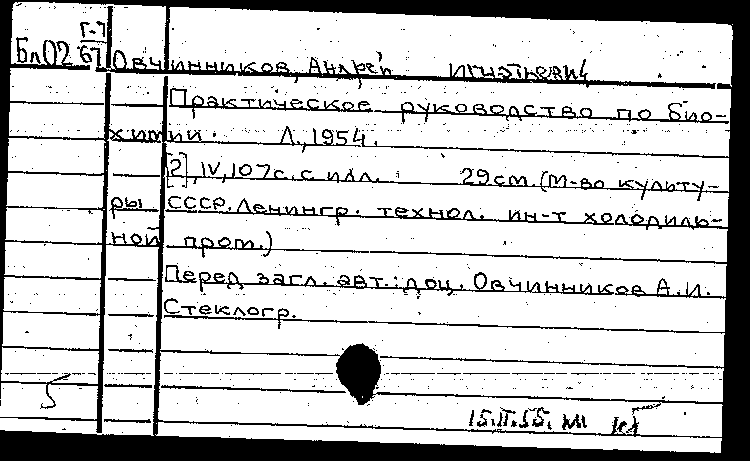 Г-7
Бл02 67 Овчинников, Андрей Игнатьевич
Практическое руководство по био-
химии. Л., 1954.
[2], IV, 107с. с илл. 29см. (М-во культу-
ры СССР. Ленингр. технол. ин-т холодиль-
ной пром.)
Перед загл. авт.: доц. Овчинников А.И.
Стеклогр.
5
15.II.55.